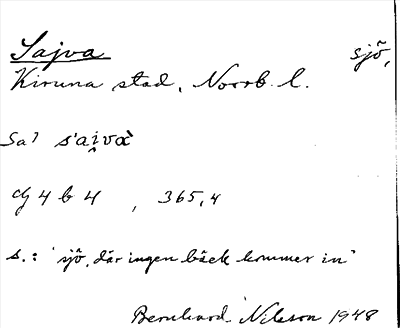 Sajva sjö,
Kiruna stad, Norrb. l.
Sal s'ai̯và
4 b 4, 365,4
s.: "sjö, där ingen bäck kommer in"
Bernhard Nilsson 1948